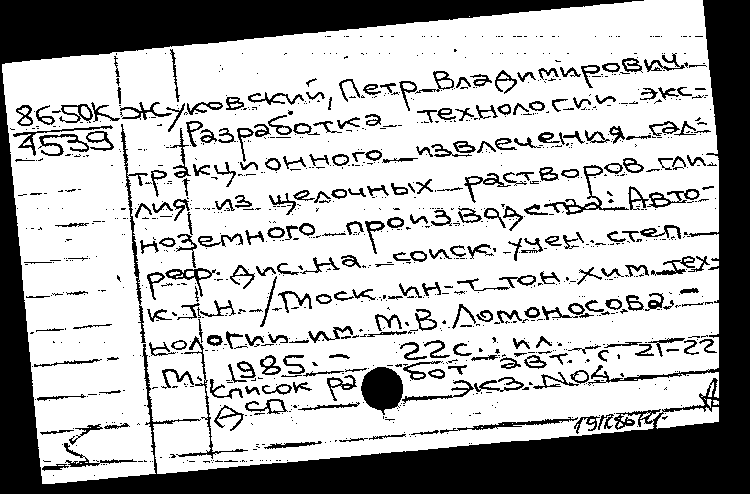 86-50К Жуковский, Петр Владимирович.
4539 Разработка технологии экс-
тракционного извлечения гал-
лия из щелочных растворов гли-
ноземного производства: Авто-
реф. дис. на соиск. учен. степ.
к.т.н. / Моск. ин-т тон. хим. тех-
нологии им. М.В. Ломоносова. -
М. 1985. - 22 с.: ил.
Список ра бот авт.: с. 21-22
ДСП. экз. №04.